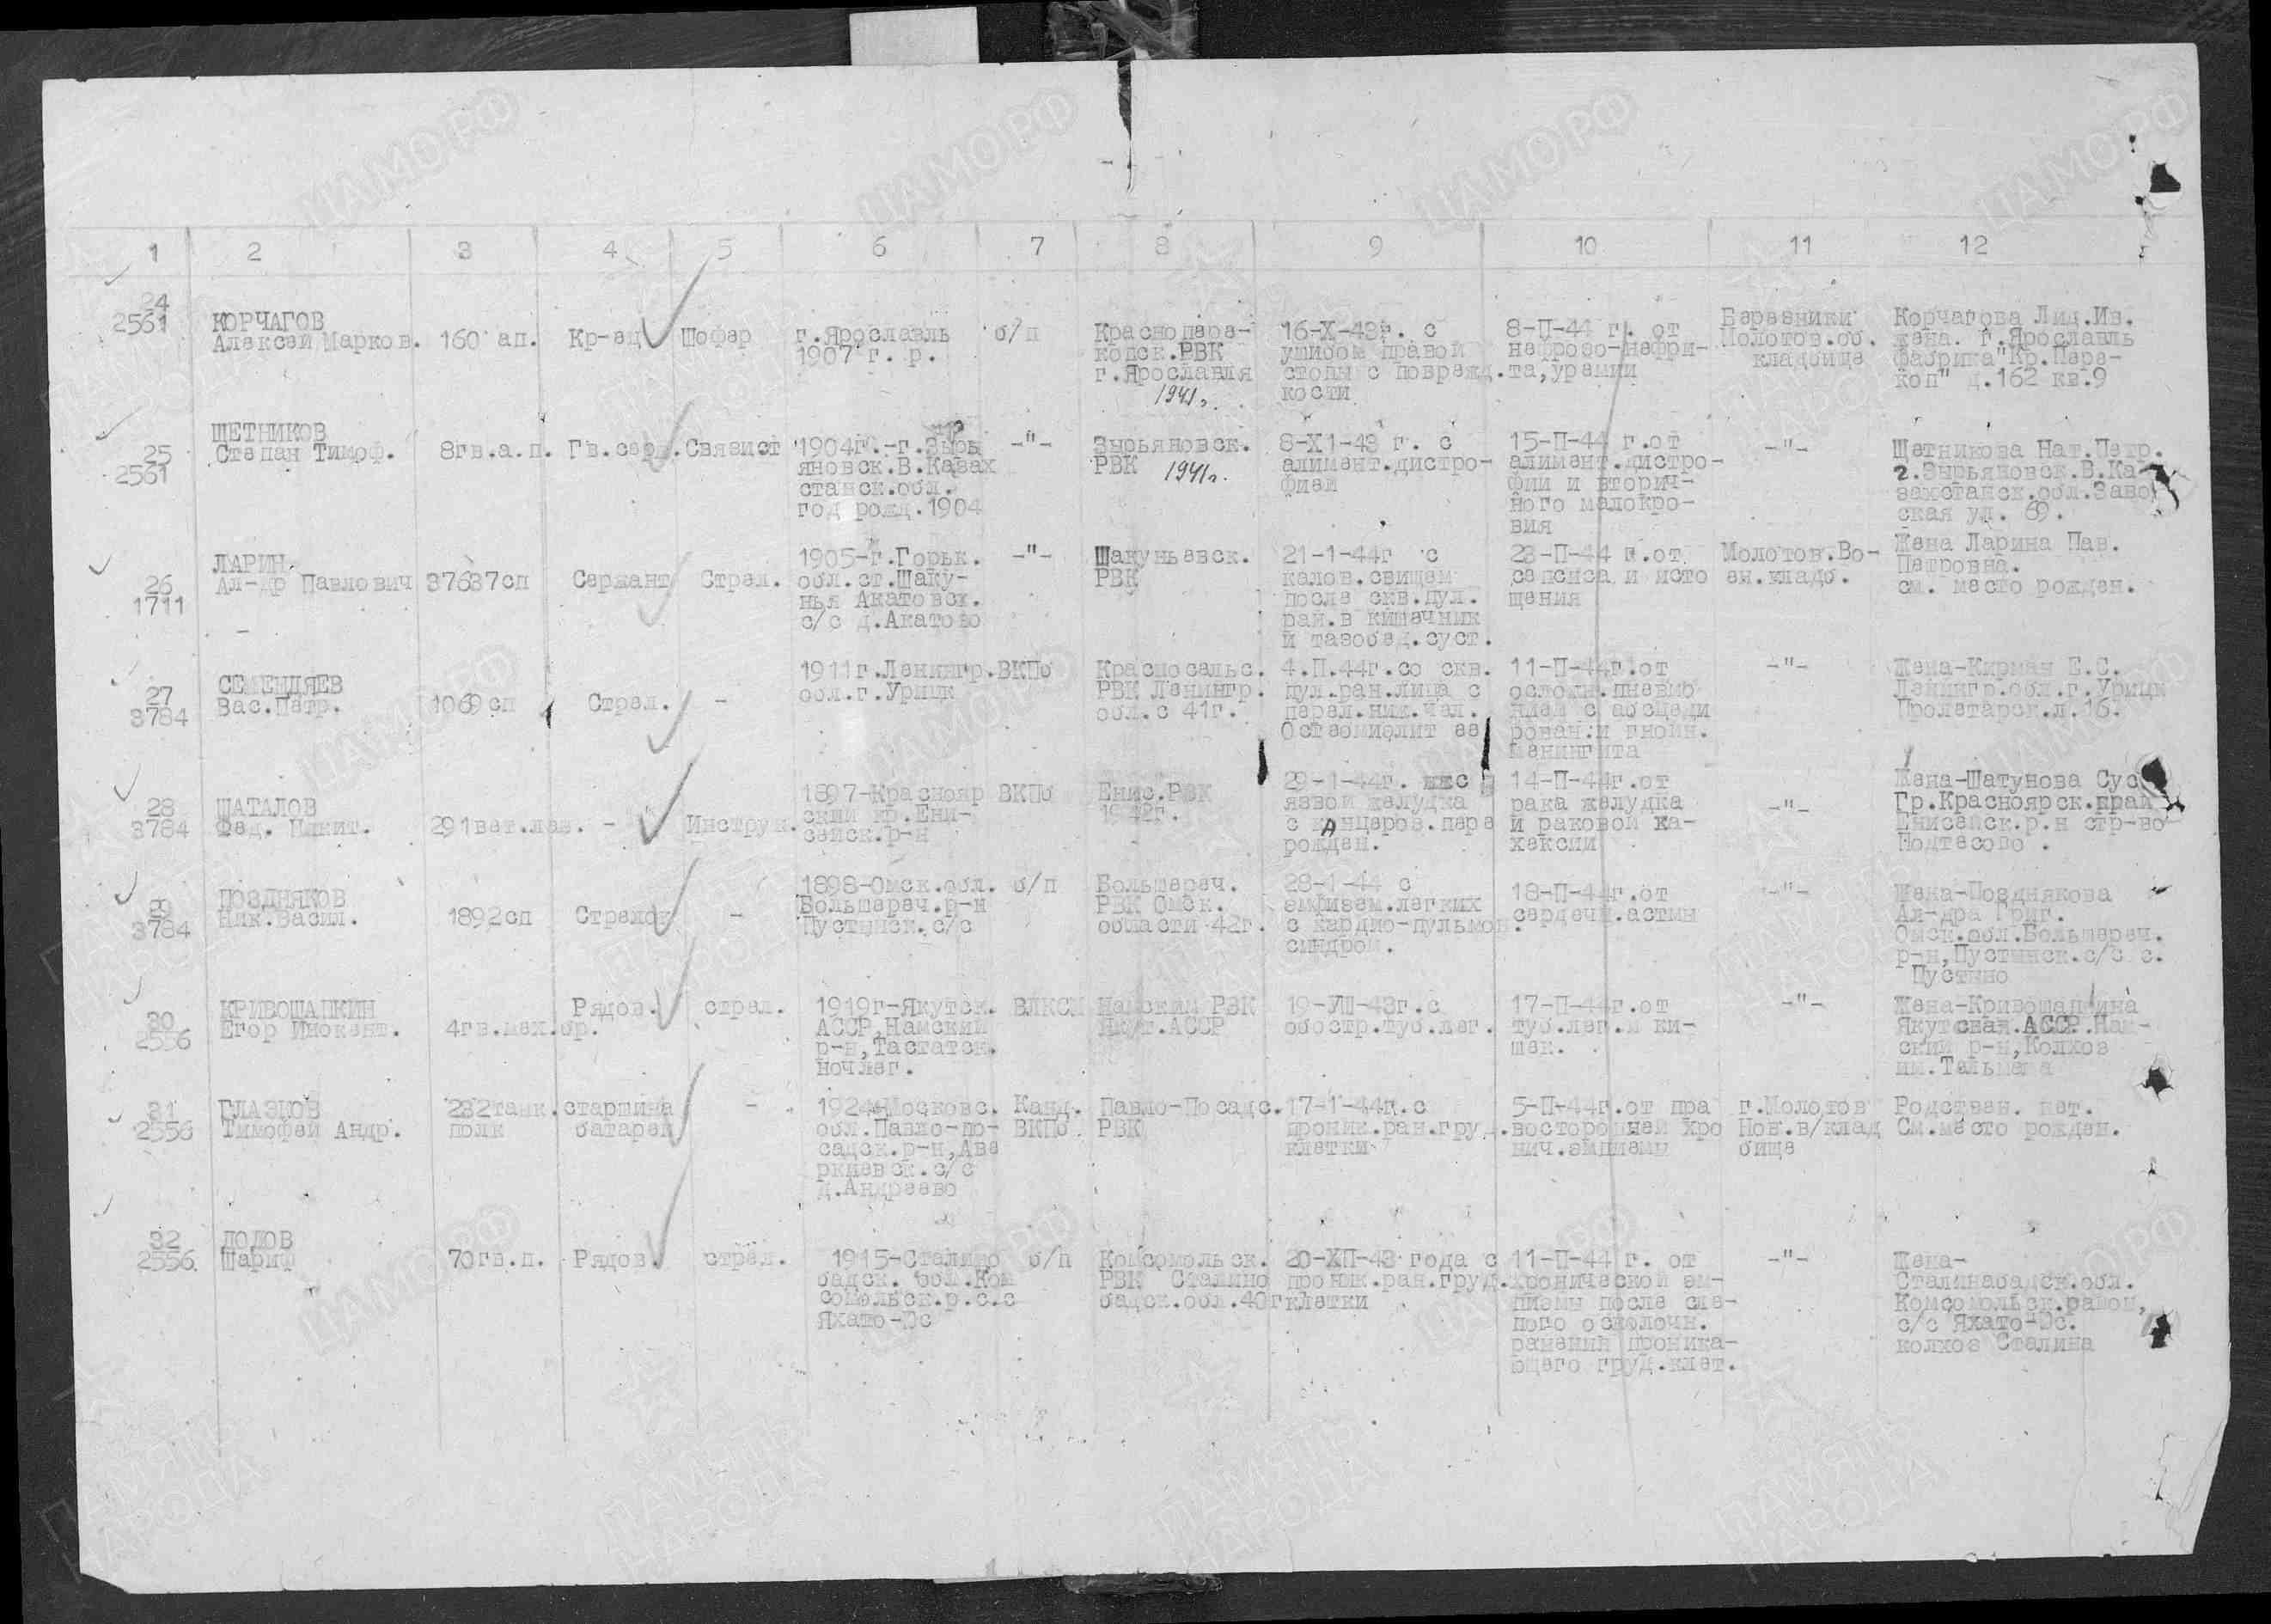 1 2 3 4 5 6 7 8 9 10 11 12
24
2561
КОРЧАГОВ
Алексей Марков.
160 ап.
Кр-ец
Шофер
г.Ярославль
1907 г. р.
б/п
Краснопере-
копск.РВК
г.Ярославля
1941г.
16-X-43г. с
ушибом правой
стопы с поврежд.
кости
8-П-44 г. от
нефрозо-нефри-
та, уремии
Березники
Молотов.об.
кладбище
Корчагова Лид.Ив.
жена. г.Ярославль
фабрика"Кр.Пере-
коп" д.162 кв.9
25
2561
ЩЕТНИКОВ
Степан Тимоф.
8гв.а.п.
Гв.серж.
Связист
1904г.-г.Зыря
яновск.В.Казах
станск.обл.
год рожд.1904
-"-
Зырьяновск.
РВК 1941г.
8-X1-43 г. с
алимент.дистро-
фией
15-П-44 г.от
алимент.дистро-
фии и вторич-
ного малокро-
вия
-"-
Щетникова Нат.Петр.
г.Зырьяновск.В.Ка-
захстанск.обл.Заво
ская ул. 69.
26
1711
ЛАРИН
Ал-др Павлович
37637сп
Сержант
Стрел.
1905-г.Горьк.
обл.ст.Шаку-
нья Акатовск.
с/с д.Акатово
-"-
Шакуньевск.
РВК
21-1-44г с
калов.свищем
после скв.пул.
ран.в кишечник
и тазобед.суст.
23-П-44 г.от
сепсиса и исто
щения
Молотов.Во-
ен.кладб.
Жена Ларина Пав.
Петровна.
см. место рожден.
27
3784
СЕМЕНДЯЕВ
Вас.Петр.
1069сп
Стрел.
-
1911г.Ленингр.
обл.г.Урицк
ВКПб
Красносельс.
РВК Ленингр.
обл.с 41г.
4.П.44г.со скв.
пул.ран.лица с
перел.ниж.чел.
Остеомиелит ее
11-П-44г.от
осложн.пневмо
нией с абсцеди
рован.и гнойн.
менингита
-"-
Жена-Кирман Е.С.
Ленингр.обл.г.Урицк
Пролетарск.л.16.
28
3784
ШАТАЛОВ
Фед. Никит.
291вет.лаз.
-
Инструк.
1897-Краснояр
ский кр.Ени-
сейск.р-н
ВКПб
Енис.РВК
1942г.
29-1-44г. с
язвой желудка
с канцероз.пере
рожден.
14-П-44г.от
рака желудка
и раковой ка-
хексии
-"-
Жена-Шатунова Сус
Гр.Красноярск.край
Енисейск.р.н стр-во
Подтесово .
29
3784
ПОЗДНЯКОВ
Ник.Васил.
1892сп
Стрелок
-
1898-Омск.обл.
Большереч.р-н
Пустынск.с/с
б/п
Большереч.
РВК Омск.
области 42г.
28-1-44 с
эмфизем.легких
с кардио-пульмон.
синдром.
18-П-44г.от
сердечн.астмы
-"-
Жена-Позднякова
Ал-дра Григ.
Омск.обл.Большереч.
р-н,Пустынск.с/с с.
Пустыно
30
2556
КРИВОШАПКИН
Егор Инокент.
4гв.мех.бр.
Рядов.
стрел.
1919г-Якутск.
АССР,Намский
р-н,Тастатск.
ночлег.
ВЛКСМ
Намским РВК
Якут.АССР
19-УШ-43г.с
обостр.туб.лег.
17-П-44г.от
туб.лег.и ки-
шек.
-"-
Жена-Кривошапкина
Якутская.АССР.Нам-
ский р-н,Колхоз
им.Тельмана
31
2556
ГЛАЗКОВ
Тимофей Андр.
232танк.
полк
старшина
батареи
-
1924-Московс.
обл.Павло-по-
садск.р-н,Аве
ркиевск.с/с
д.Андреево
Канд.
ВКПб
Павло-Посадс.
РВК
17-1-44г.с
проник.ран.груд.
клетки
5-П-44г.от пра
восторонней хро
нич.эмпиемы
г.Молотов
Нов.в/клад
бище
Родствен. нет.
См.место рожден.
32
2556
ДОДОВ
Шариф
70гв.п.
Рядов.
стрел.
1915-Сталино
бадск. обл.Ком
сомольск.р.с.с
Яхато-Ос
б/п
Комсомольск.
РВК Сталино
бадск.обл.40г
20-ХП-43 года с
проник.ран.груд.
клетки
11-П-44 г. от
хронической эм-
пиэмы после сле-
пого осколочн.
ранения проника-
ющего груд.клет.
-"-
Жена-
Сталинабадск.обл.
Комсомольск.район,
с/с Яхато-Ос.
колхоз Сталина